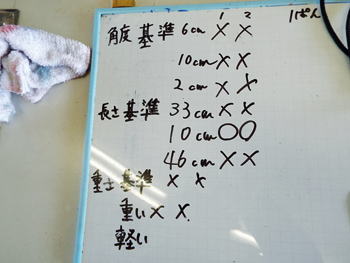 1 2 1ぱん
角度基準 6cm × ×
10cm × ×
2cm × ×
長さ基準 33cm × ×
10cm ○○
46cm × ×
重さ基準 × ×
重い × ×
軽い